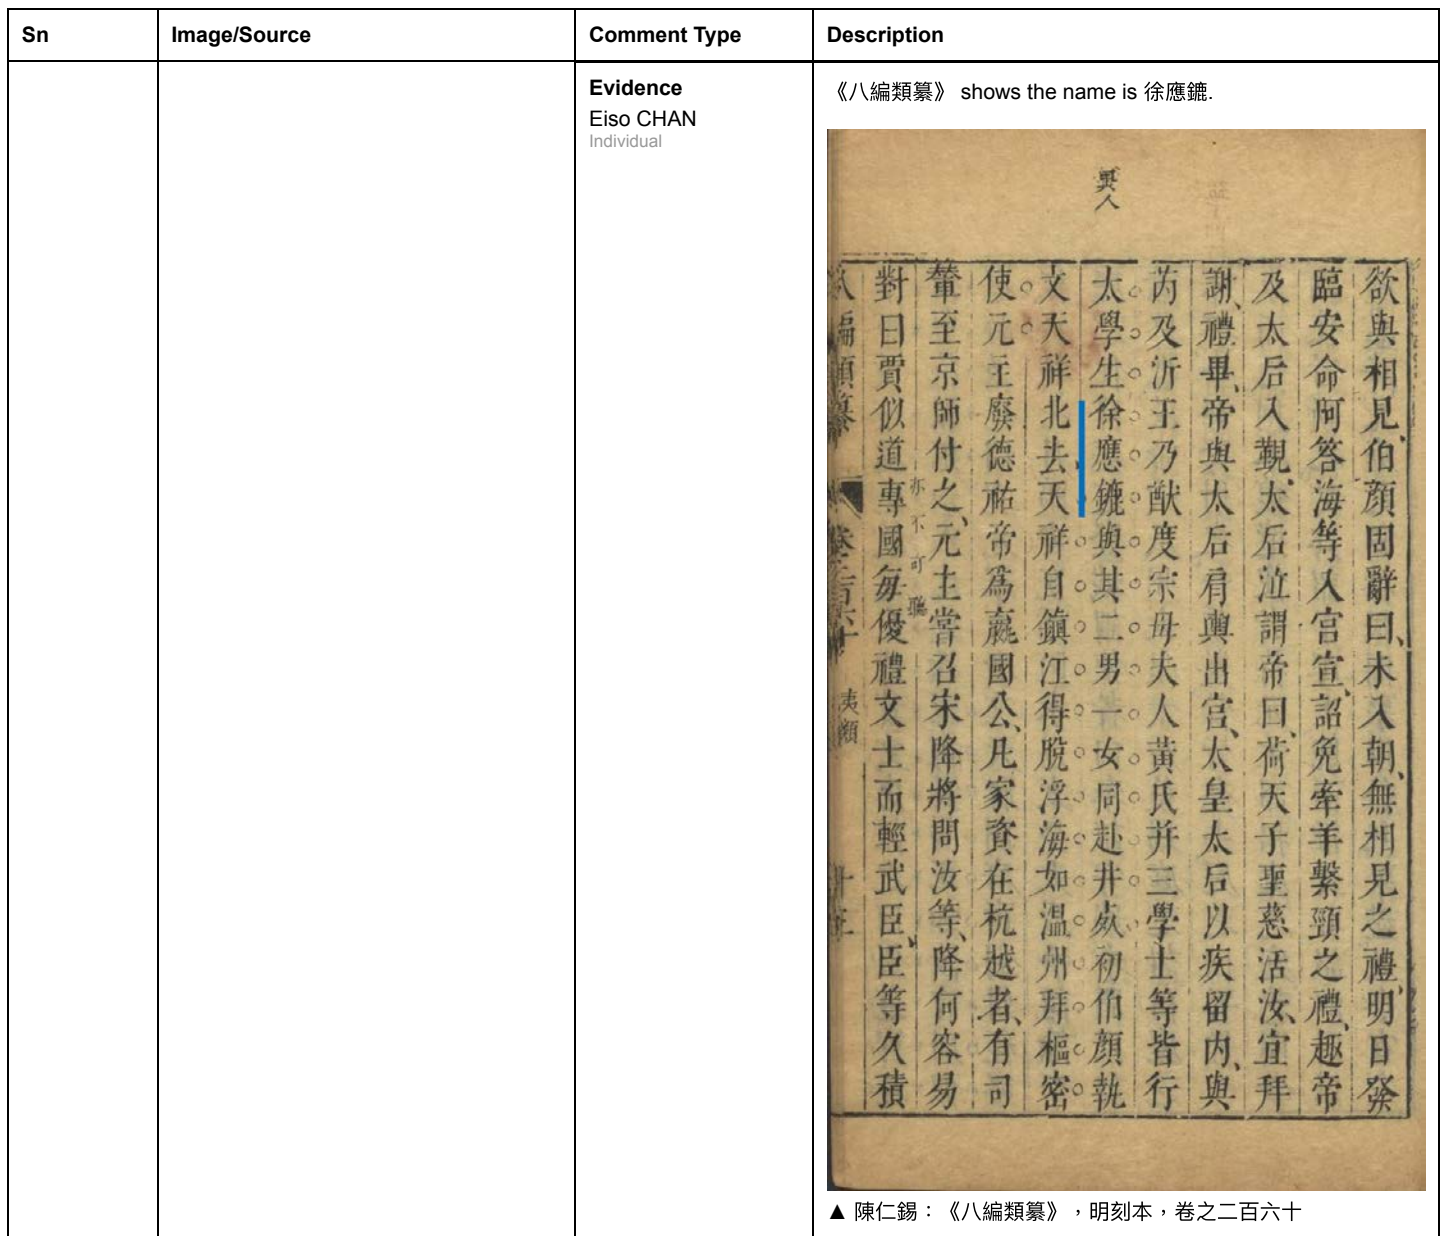 Sn Image/Source Comment Type Description
Evidence
Eiso CHAN
Individual
《八編類纂》 shows the name is 徐應鑣.
異人
欲與相見、伯顏固辭曰、未入朝、無相見之禮、明日發
臨安命阿答海等入宮宣詔免牽羊繫頸之禮、趣帝
及太后入覲、太后泣謂帝曰、荷天子聖慈活汝、宜拜
謝、禮畢、帝與太后肩輿出宮、太皇太后以疾留内、與
芮及沂王乃猷度宗母夫人黃氏并三學士等皆行
太學生徐應鑣與其二男一女同赴井死初伯顏執
文天祥北去、天祥自鎮江得脫浮海如溫州拜樞密
使元主廢德祐帝爲瀛國公、凡家資在杭越者、有司
輦至京師付之、元主嘗召宋降將問汝等、降何容易
亦不可聽
對曰賈似道專國每優禮文士而輕武臣、臣等久積
八編類纂 卷之二百六十 夷類
▲ 陳仁錫：《八編類纂》，明刻本，卷之二百六十